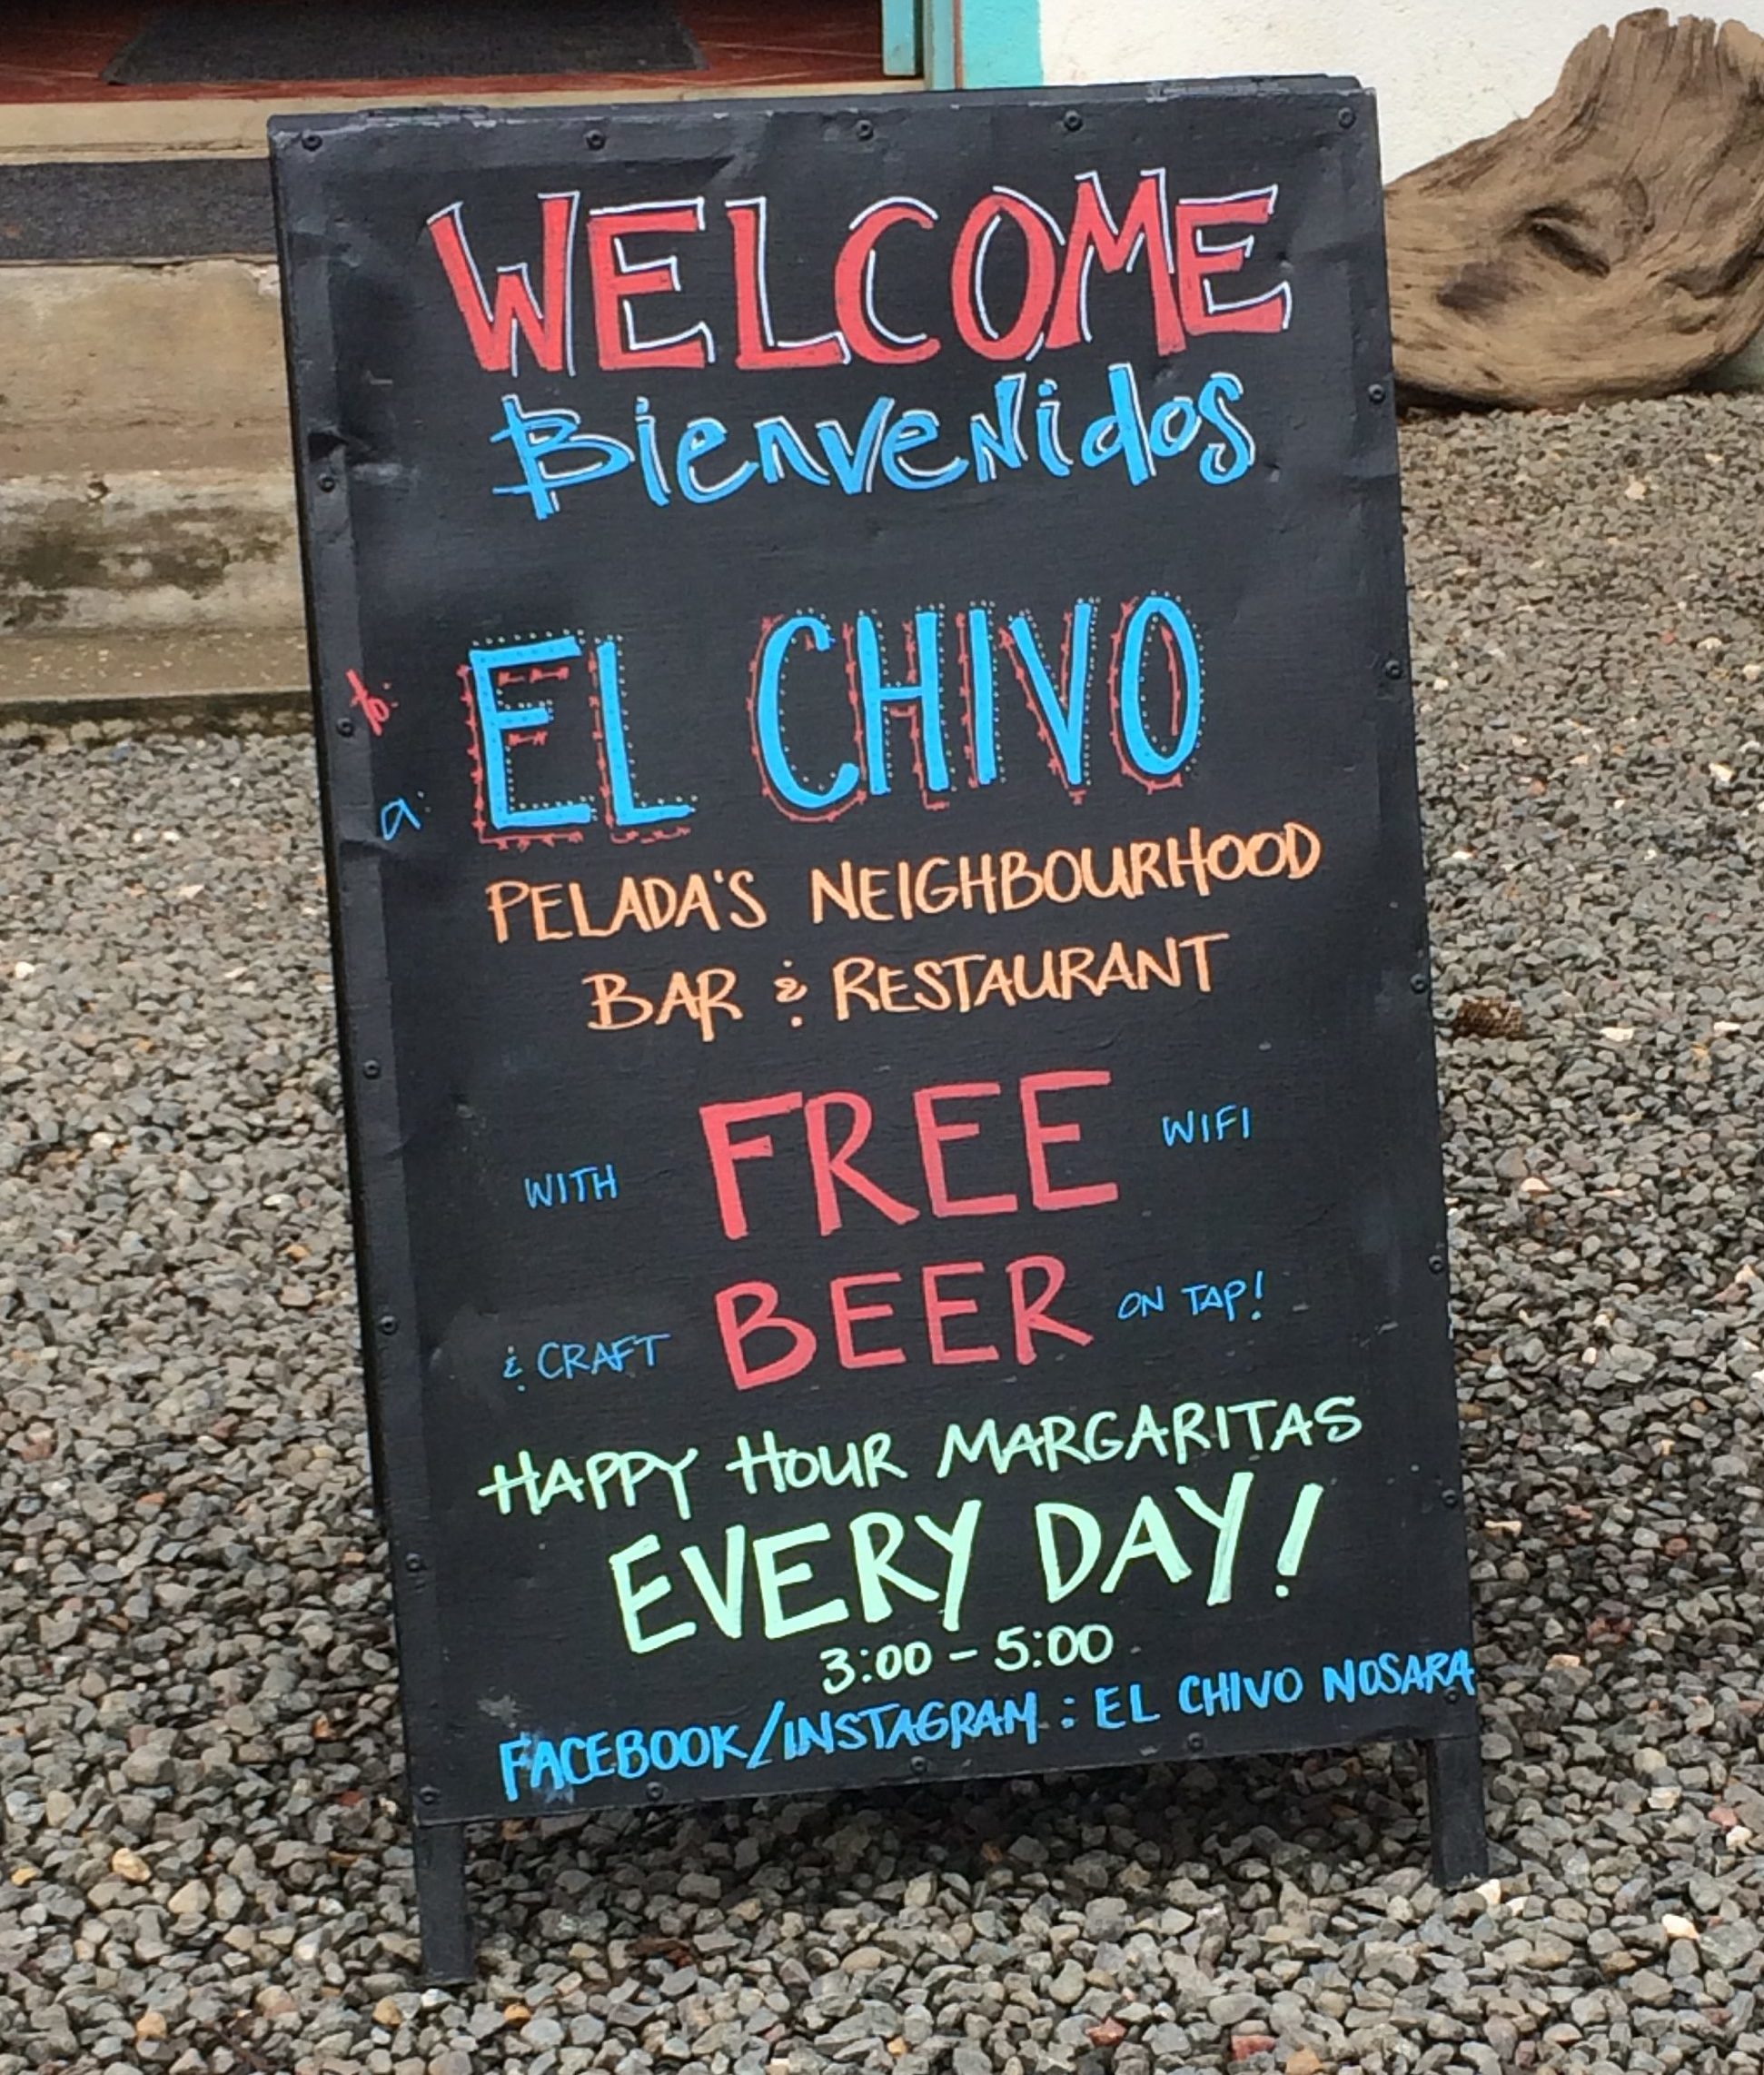 WELCOME
Bienvenidos
to:
a:
EL CHIVO
PELADA'S NEIGHBOURHOOD
BAR & RESTAURANT
WITH FREE WIFI
& CRAFT BEER ON TAP!
HAPPY HOUR MARGARITAS
EVERY DAY!
3:00 - 5:00
FACEBOOK/INSTAGRAM : EL CHIVO NOSARA